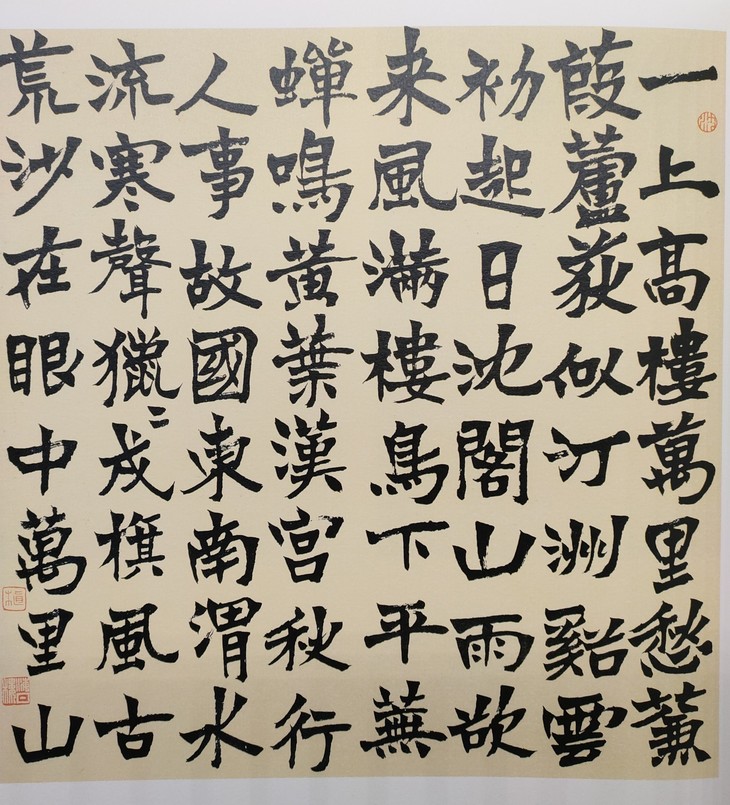 一上高樓萬里愁蒹
葭蘆荻似汀洲谿雲
初起日沈閣山雨欲
来風滿樓鳥下平蕪
蟬鳴黄葉漢宮秋行
人事故國東南渭水
流寒聲獵〻戍旗風古
荒沙在眼中萬里山